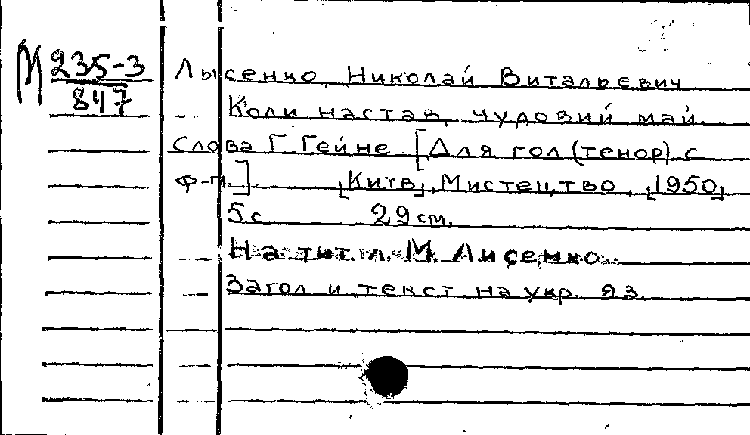 М 235-3
847
Лысенко, Николай Витальевич
Коли настав чудовий май.
Слова Г. Гейне [Для гол. (тенор) с
ф-п.] [Київ], Мистецтво, [1950]
5 с. 29 см.
На тит. л. М. Лисенко.
Загол. и текст на укр. яз.